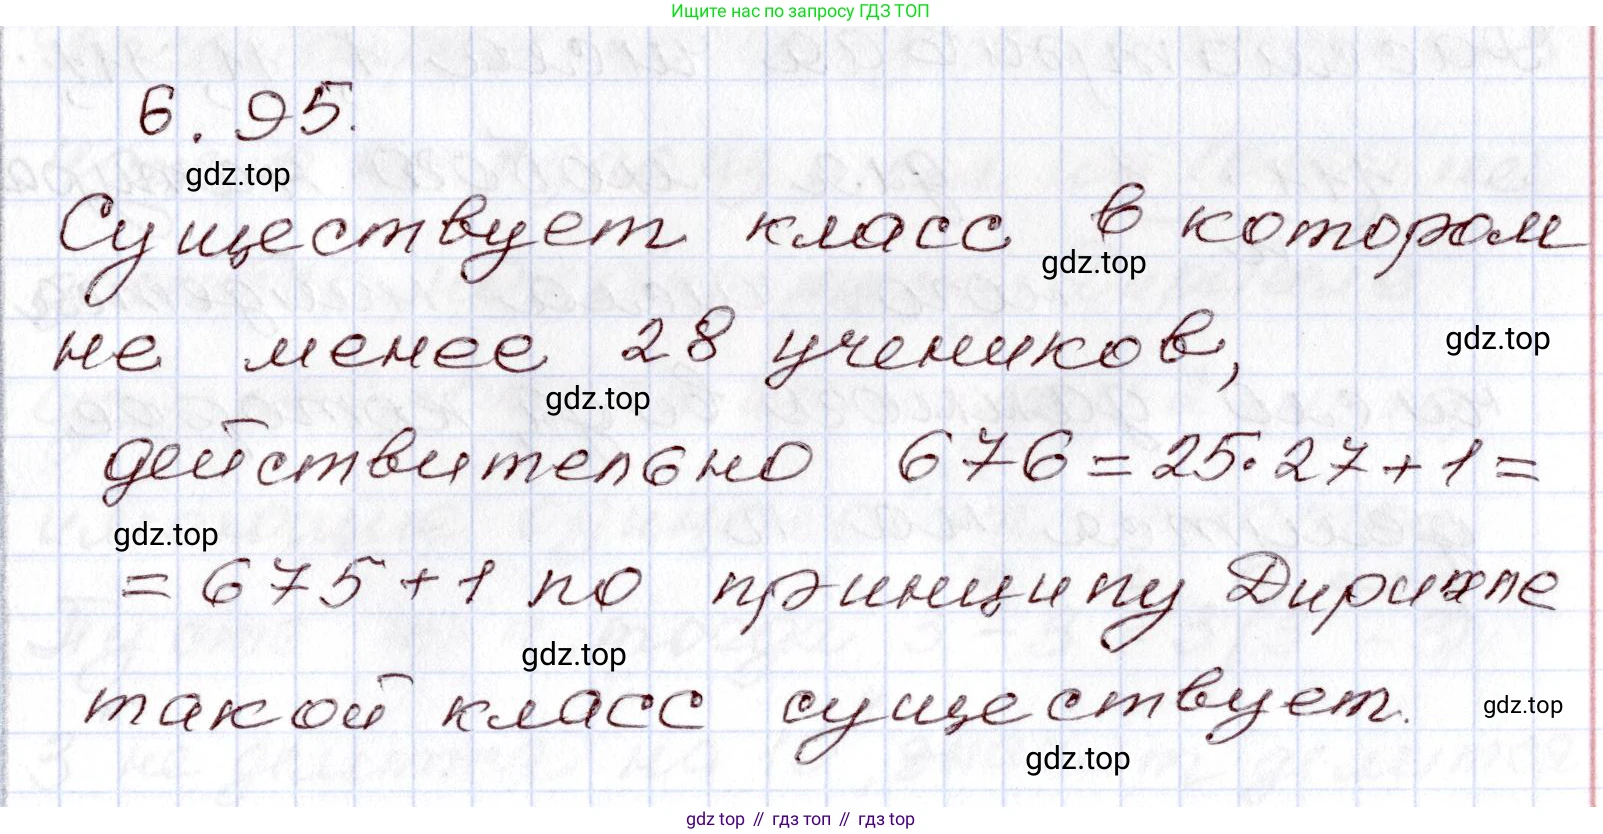 Ищите нас по запросу ГДЗ ТОП
6.95.
gdz.top
Существует класс в котором
gdz.top
не менее 28 учеников,
gdz.top
gdz.top
действительно 676=25·27+1=
gdz.top
=675+1 по принципу Дирихле
gdz.top
такой класс существует.
gdz.top
gdz.top
gdz.top // гдз топ // гдз top